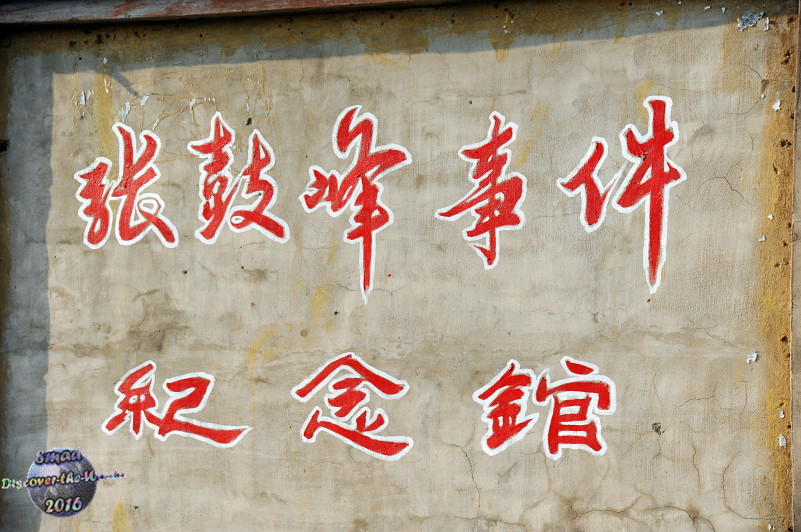 张鼓峰事件
纪念館
Smad
Discover-the-World
2016